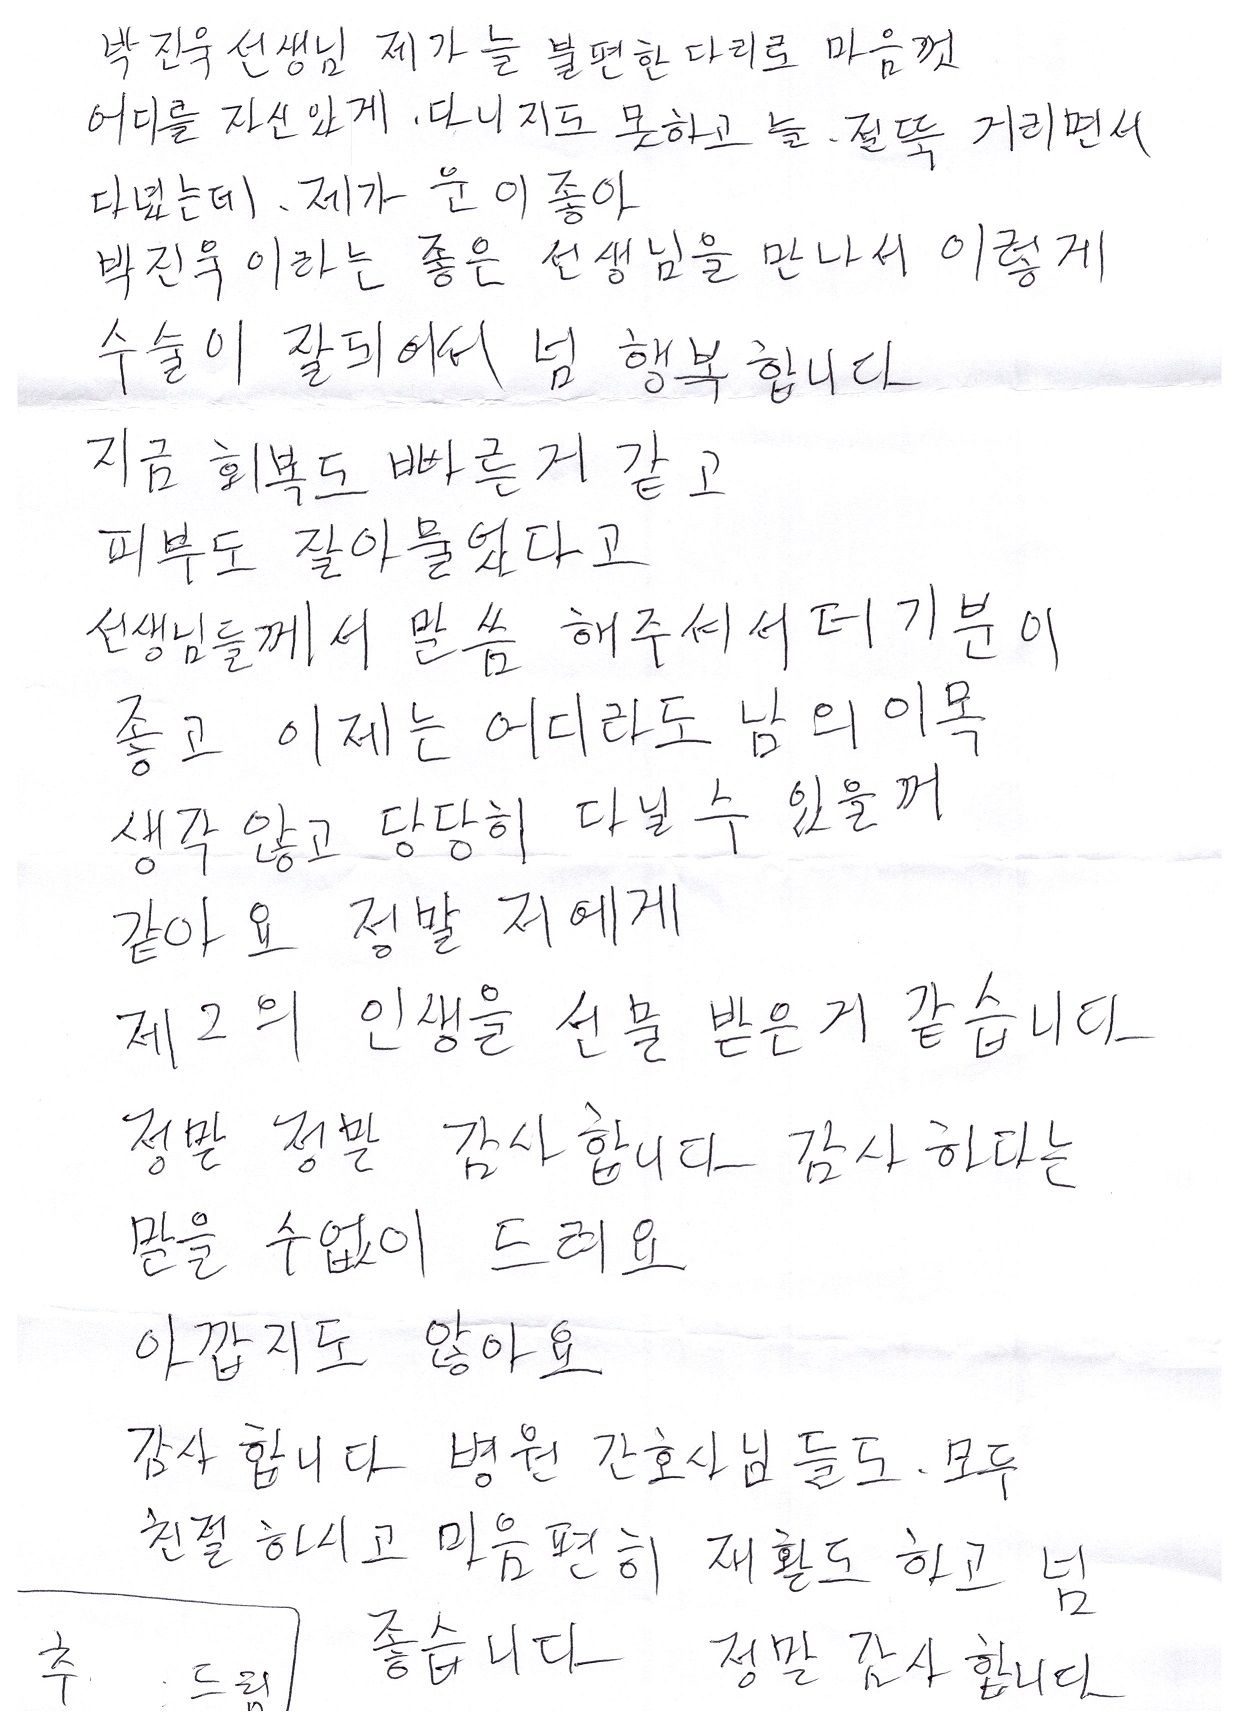 박진욱선생님 제가 늘 불편한다리로 마음껏
어디를 자신있게 . 다니지도 못하고 늘 . 절뚝 거리면서
다녔는데 . 제가 운이좋아
박진욱이라는 좋은 선생님을 만나서 이렇게
수술이 잘되어서 넘 행복합니다
지금 회복도 빠른거 같고
피부도 잘아물었다고
선생님들께서 말씀 해주셔서 더기분이
좋고 이제는 어디라도 남의 이목
생각않고 당당히 다닐수 있을꺼
같아요 정말 저에게
제2의 인생을 선물 받은거 같습니다
정말 정말 감사합니다 감사하다는
말을 수없이 드려요
아깝지도 않아요
감사합니다 병원 간호사님들도 . 모두
친절하시고 마음편히 재활도 하고 넘
좋습니다 정말 감사합니다
추 드림